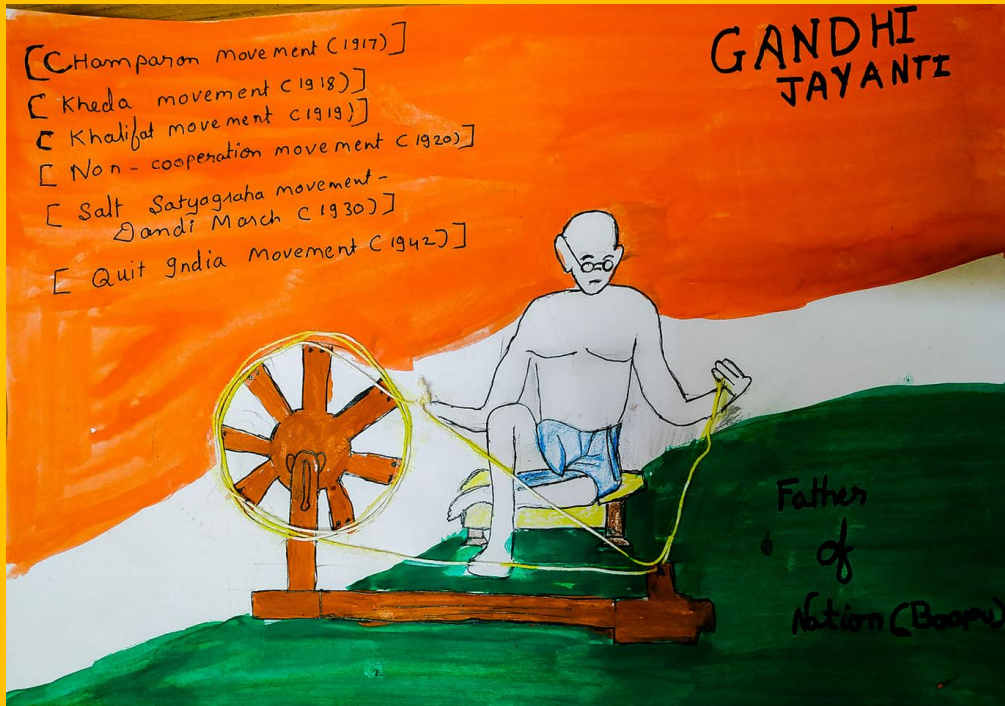 [CHamparan movement (1917)]
[Kheda movement (1918)]
[Khalifat movement (1919)]
[Non-cooperation movement (1920)]
[Salt Satyagraha movement-
Dandi March (1930)]
[Quit India Movement (1942)]
GANDHI
JAYANTI
Father
of
Nation (Baapu)